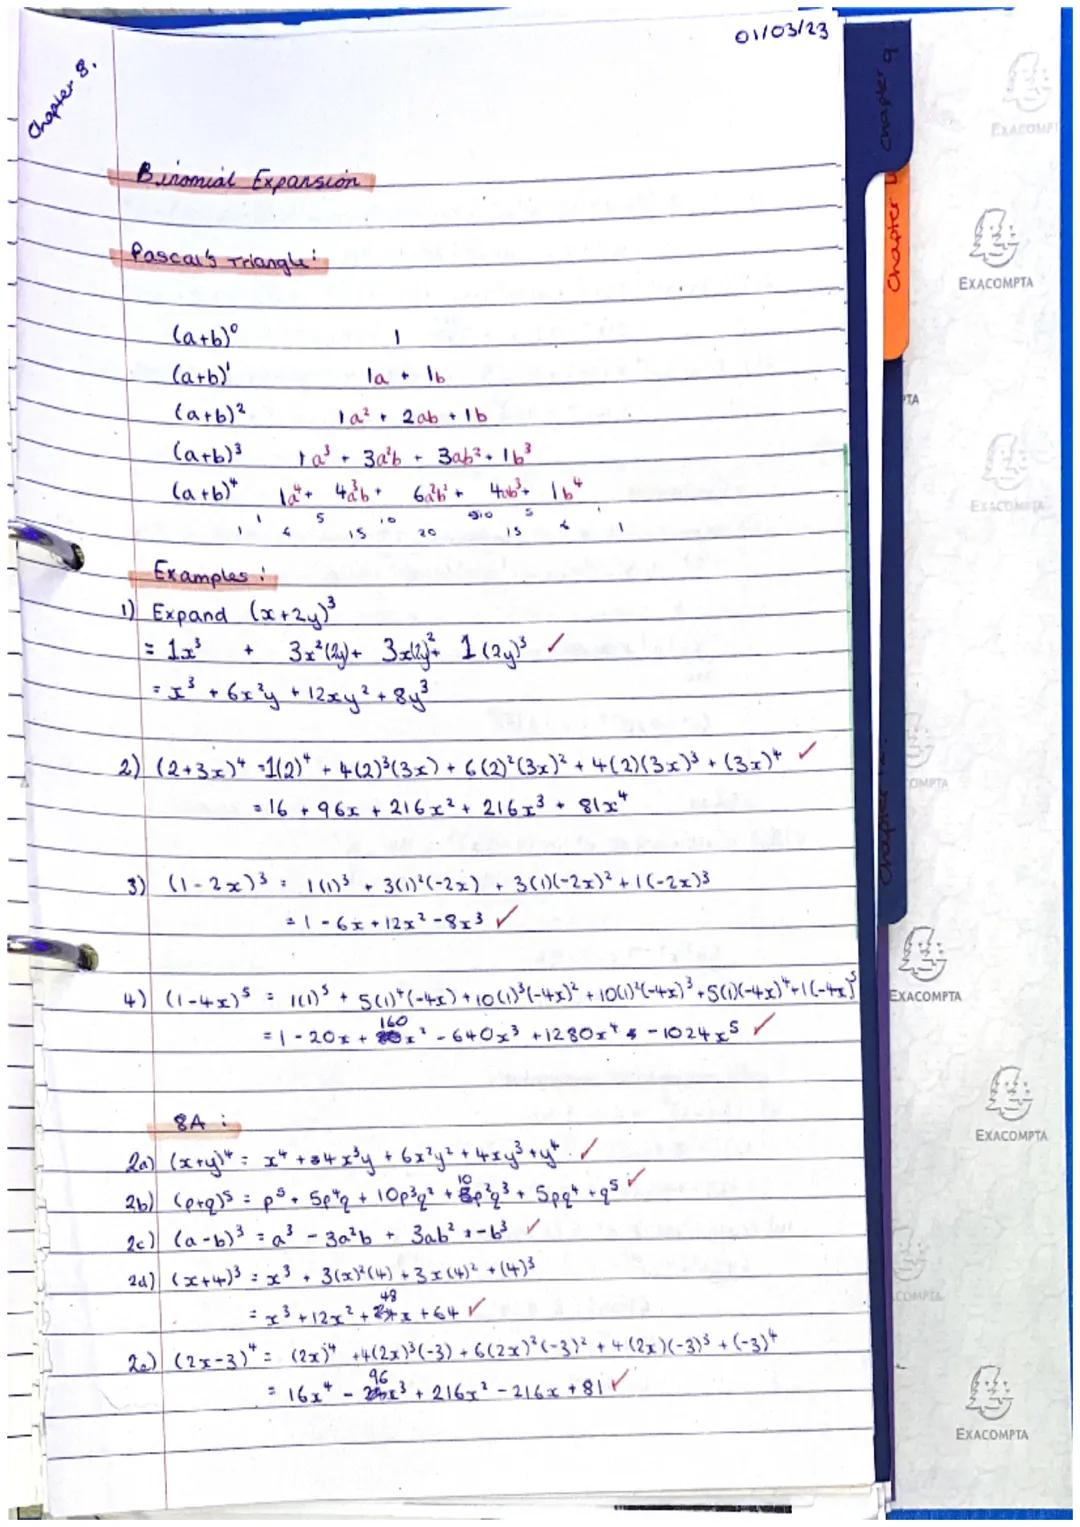 01/03/23
Chapter 8.
Binomial Expansion
Pascal's Triangle:
(a+b)⁰ 1
(a+b)¹ 1a + 1b
(a+b)² 1a² + 2ab + 1b
(a+b)³ 1a³ + 3a²b + 3ab² + 1b³
(a+b)⁴ 1a⁴ + 4a³b + 6a²b² + 4ab³ + 1b⁴
1 5 10 10 5 1
1 6 15 20 15 6 1
Examples:
1) Expand (x+2y)³
= 1x³ + 3x²(2y) + 3x(2y)² + 1(2y)³ ✓
= x³ + 6x²y + 12xy² + 8y³
2) (2+3x)⁴ = 1(2)⁴ + 4(2)³(3x) + 6(2)²(3x)² + 4(2)(3x)³ + (3x)⁴ ✓
= 16 + 96x + 216x² + 216x³ + 81x⁴
3) (1-2x)³ = 1(1)³ + 3(1)²(-2x) + 3(1)(-2x)² + 1(-2x)³
= 1 - 6x + 12x² - 8x³ ✓
4) (1-4x)⁵ = 1(1)⁵ + 5(1)⁴(-4x) + 10(1)³(-4x)² + 10(1)²(-4x)³ + 5(1)(-4x)⁴ + 1(-4x)⁵
= 1 - 20x + 160x² - 640x³ + 1280x⁴ - 1024x⁵ ✓
8A:
2a) (x+y)⁴ = x⁴ + 4x³y + 6x²y² + 4xy³ + y⁴. ✓
2b) (p+q)⁵ = p⁵ + 5p⁴q + 10p³q² + 10p²q³ + 5pq⁴ + q⁵ ✓
2c) (a-b)³ = a³ - 3a²b + 3ab² - b³ ✓
2d) (x+4)³ = x³ + 3(x)²(4) + 3x(4)² + (4)³
= x³ + 12x² + 48x + 64 ✓
2e) (2x-3)⁴ = (2x)⁴ + 4(2x)³(-3) + 6(2x)²(-3)² + 4(2x)(-3)³ + (-3)⁴
= 16x⁴ - 96x³ + 216x² - 216x + 81 ✓
Chapter 9
Chapter
Chapter 12.
EXACOMPTA
EXACOMPTA
PTA
EXACOMPTA
OMPTA
EXACOMPTA
EXACOMPTA
COMPTA
EXACOMPTA